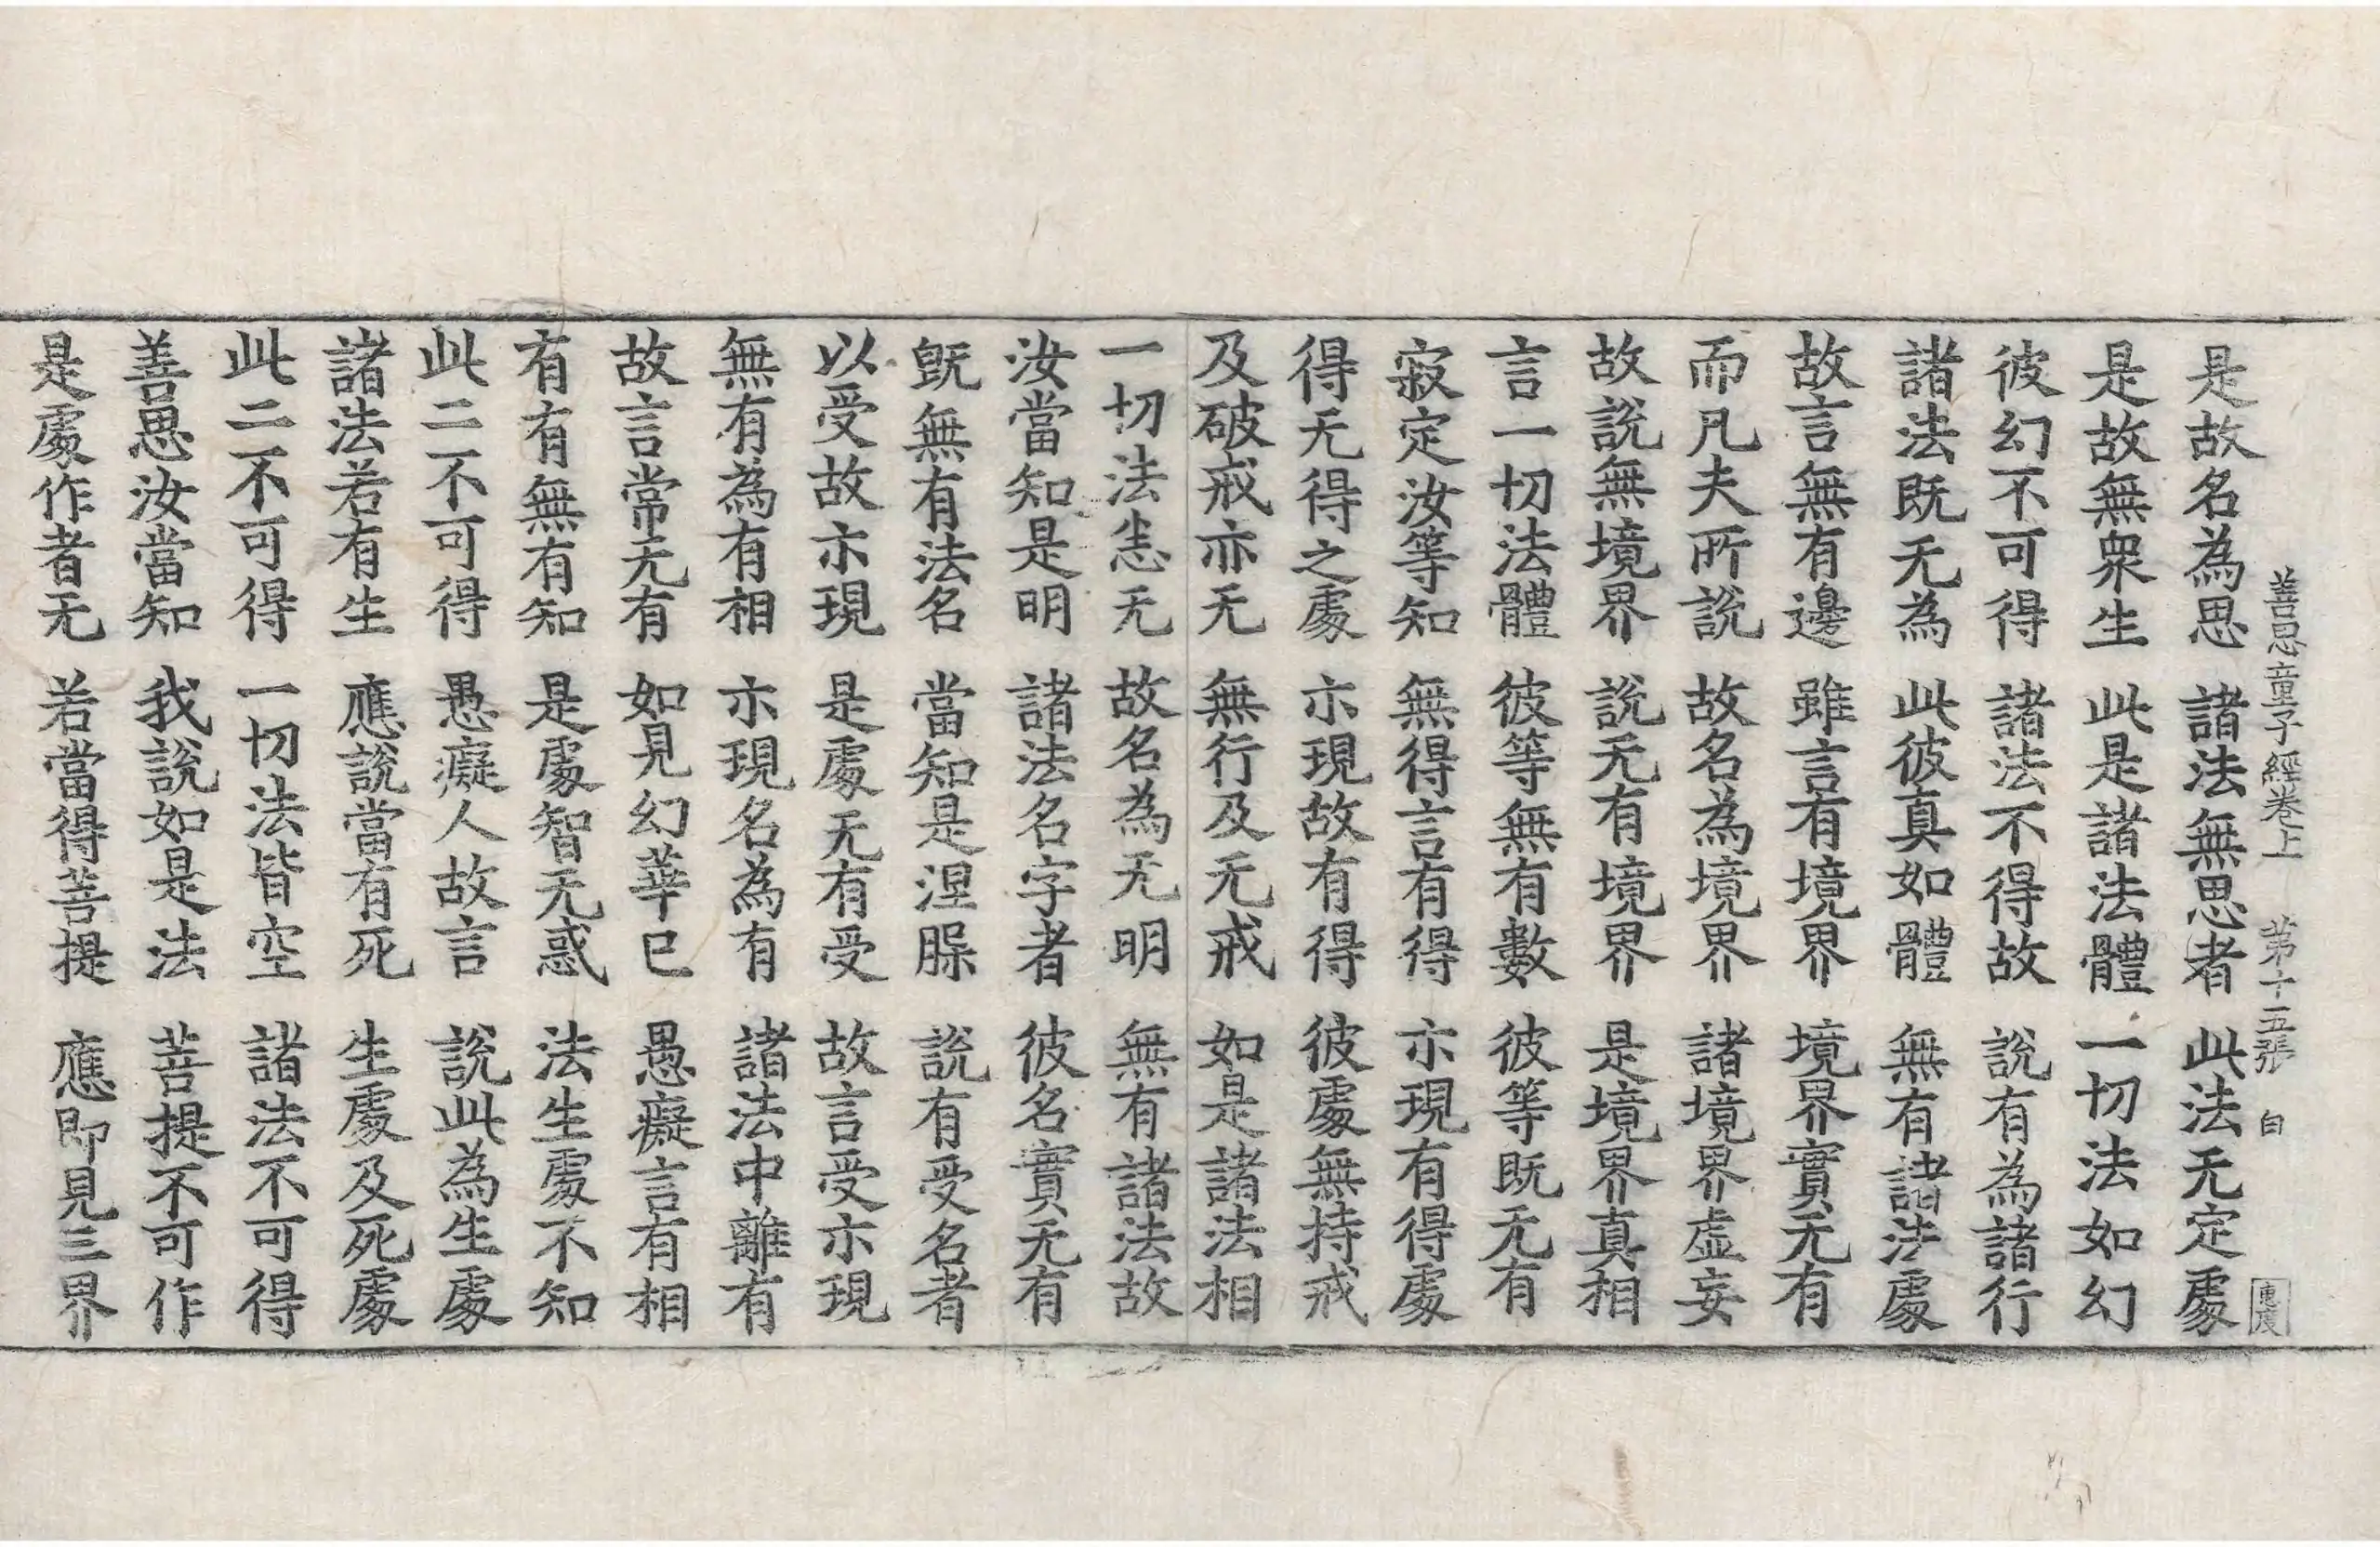 善思童子經卷上 第十五張 白
是故名為思 諸法無思者 此法无定處
是故無衆生 此是諸法體 一切法如幻
彼幻不可得 諸法不得故 說有為諸行
諸法既无為 此彼真如體 無有諸法處
故言無有邊 雖言有境界 境界實无有
而凡夫所說 故名為境界 諸境界虛妄
故說無境界 說无有境界 是境界真相
言一切法體 彼等無有數 彼等既无有
寂定汝等知 無得言有得 亦現有得處
得无得之處 亦現故有得 彼處無持戒
及破戒亦无 無行及无戒 如是諸法相
一切法恙无 故名為无明 無有諸法故
汝當知是明 諸法名字者 彼名實无有
既無有法名 當知是涅槃 說有受名者
以受故亦現 是處无有受 故言受亦現
無有為有相 亦現名為有 諸法中離有
故言常无有 如見幻華已 愚癡言有相
有有無有知 是處智无惑 法生處不知
此二不可得 愚癡人故言 說此為生處
諸法若有生 應說當有死 生處及死處
此二不可得 一切法皆空 諸法不可得
善思汝當知 我說如是法 菩提不可作
是處作者无 若當得菩提 應即見三界